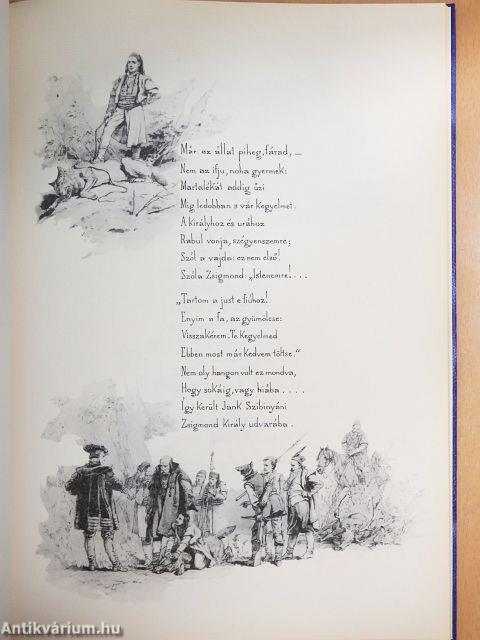 Már ez állat piheg, fárad, —
Nem az ifju, noha gyermek:
Martalékát addig űzi
Mig ledobban s vár kegyelmet.
A királyhoz és urához
Rabul vonja, szégyenszemre;
Szól a vajda: ez nem első!
Szóla Zsigmond: „Istenemre! . . .
„Tartom a just e fiúhoz!
Enyim a fa, az gyümölcse:
Visszakérem. Te Kegyelmed
Ebben most már kedvem töltse."
Nem oly hangon volt ez mondva,
Hogy sokáig, vagy hiába . . . .
Igy került Jank Szibinyáni
Zsigmond király udvarába .
Antikvárium.hu